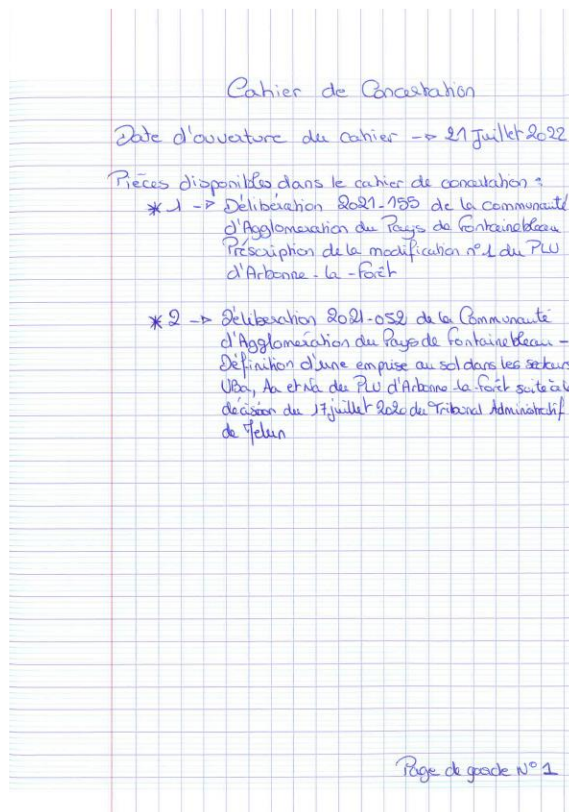 Cahier de Concertation
Date d'ouverture du cahier -> 21 Juillet 2022
Pièces disponibles dans le cahier de concertation :
* 1 -> Délibération 2021-155 de la communauté
d'Agglomération du Pays de Fontainebleau
Préscription de la modification n°1 du PLU
d'Arbonne-la-Forêt
* 2 -> Délibération 2021-052 de la Communauté
d'Agglomération du Pays de Fontainebleau -
Définition d'une emprise au sol dans les secteurs
UBa, Aa et Na du PLU d'Arbonne-la-Forêt suite à la
décision du 17 juillet 2020 du Tribunal Administratif
de Melun
Page de garde N° 1